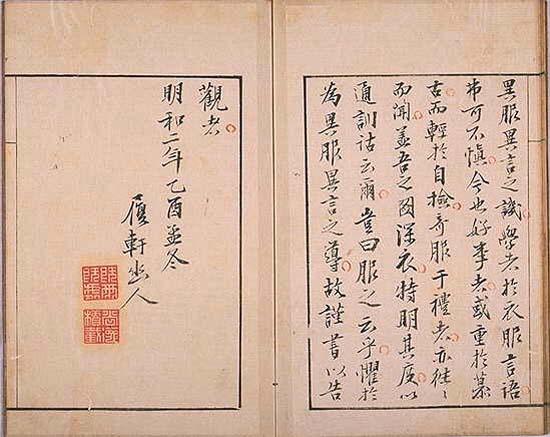 異服異言之譏學者於衣服言語
弗可不慎今也好事者或重於慕
古而輕於自撿奇服干禮者亦往〻
而聞蓋吾之圖深衣特明其度以
通訓詁云爾豈曰服之云乎懼於
為異服異言之導故謹書以告
觀者
明和二年乙酉孟冬
履軒幽人